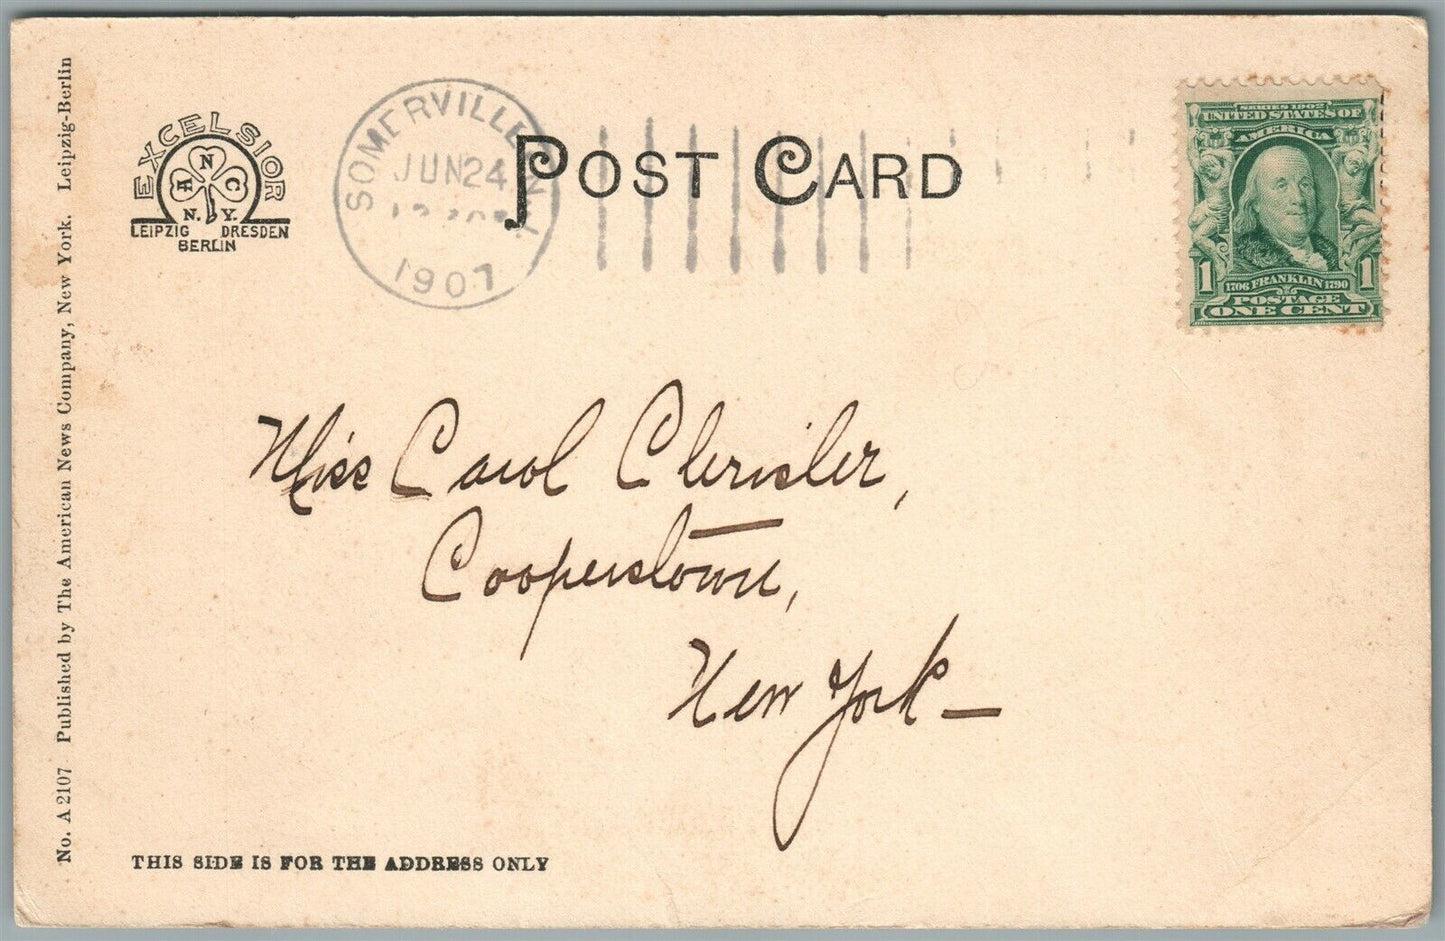 No. A 2107 Published by The American News Company, New York. Leipzig-Berlin
EXCELSIOR
A N C
N. Y.
LEIPZIG DRESDEN
BERLIN
SOMERVILLE, N.J.
JUN 24
1907
POST CARD
SERIES 1902
UNITED STATES OF
AMERICA
1 1
1706 FRANKLIN 1790
POSTAGE
ONE CENT
Miss Carol
Cooperstown,
New York —
THIS SIDE IS FOR THE ADDRESS ONLY